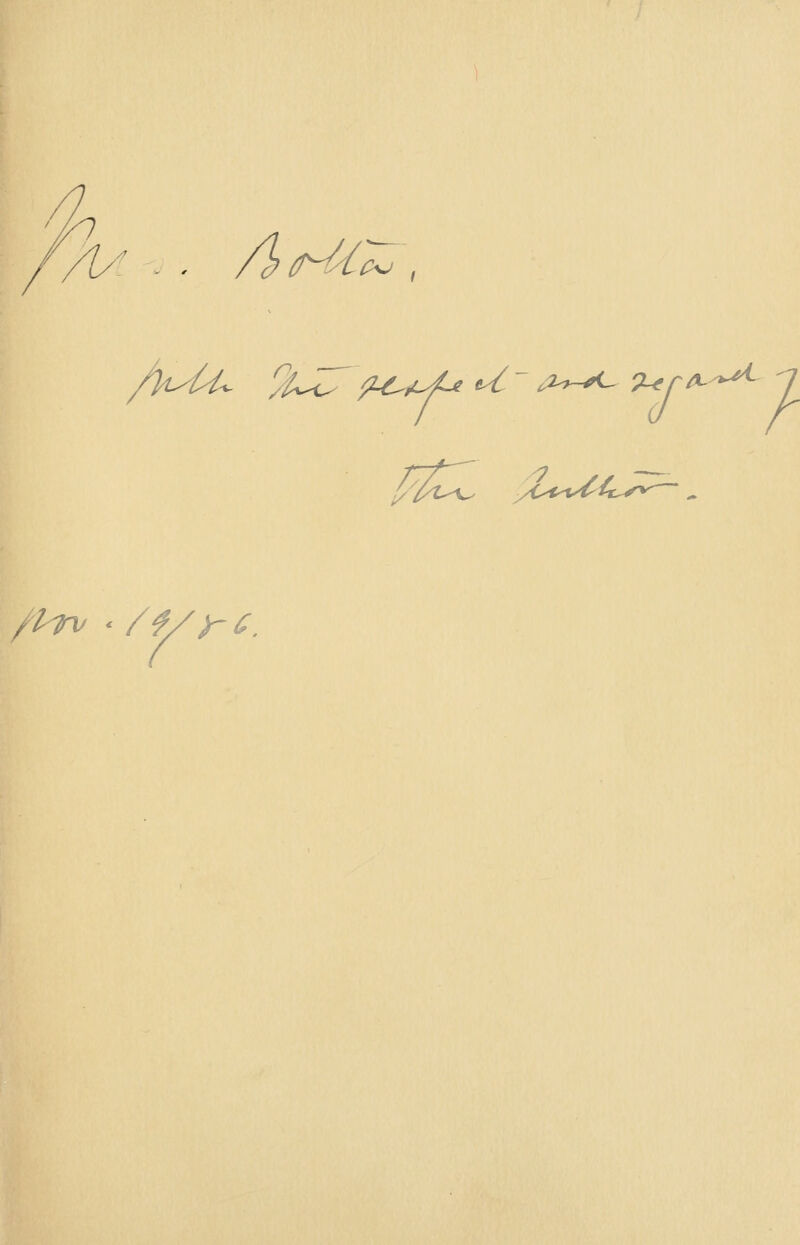 Mrs. Botta,
With the respect and regard of
The Author.
Nov. 19/86.